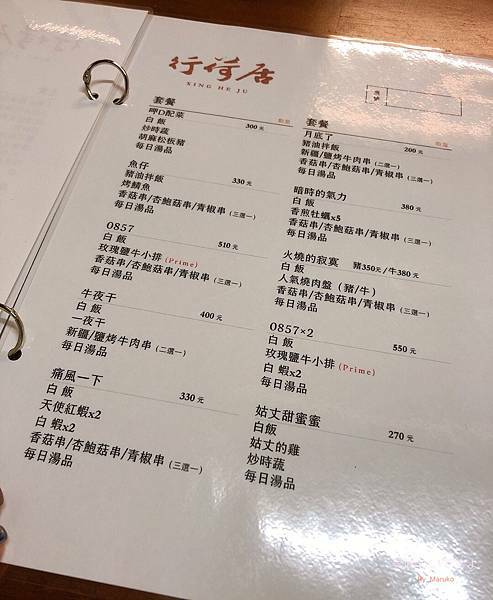 行荷居
XING HE JU
套餐
呷D配菜 300 元
白飯
炒時蔬
胡麻松板豬
每日湯品
魚仔 330 元
豬油拌飯
烤鯖魚
香菇串/杏鮑菇串/青椒串(三選一)
每日湯品
0857 510 元
白飯
玫瑰鹽牛小排(Prime)
香菇串/杏鮑菇串/青椒串(三選一)
每日湯品
牛夜干 400 元
白飯
一夜干
新疆/鹽烤牛肉串(二選一)
每日湯品
痛風一下 330 元
白飯
天使紅蝦x2
白蝦x2
香菇串/杏鮑菇串/青椒串(三選一)
每日湯品
套餐
月底了 200 元
豬油拌飯
新疆/鹽烤牛肉串(二選一)
香菇串/杏鮑菇串/青椒串(三選一)
每日湯品
暗時的氣力 380 元
白飯
香煎牡蠣x5
香菇串/杏鮑菇串/青椒串(三選一)
每日湯品
火燒的寂寞 豬350元/牛380元
白飯
人氣燒肉盤(豬/牛)
香菇串/杏鮑菇串/青椒串(三選一)
每日湯品
0857×2 550 元
白飯
玫瑰鹽牛小排(Prime)
白蝦x2
每日湯品
姑丈甜蜜蜜 270 元
白飯
姑丈的雞
炒時蔬
每日湯品
By Maruko